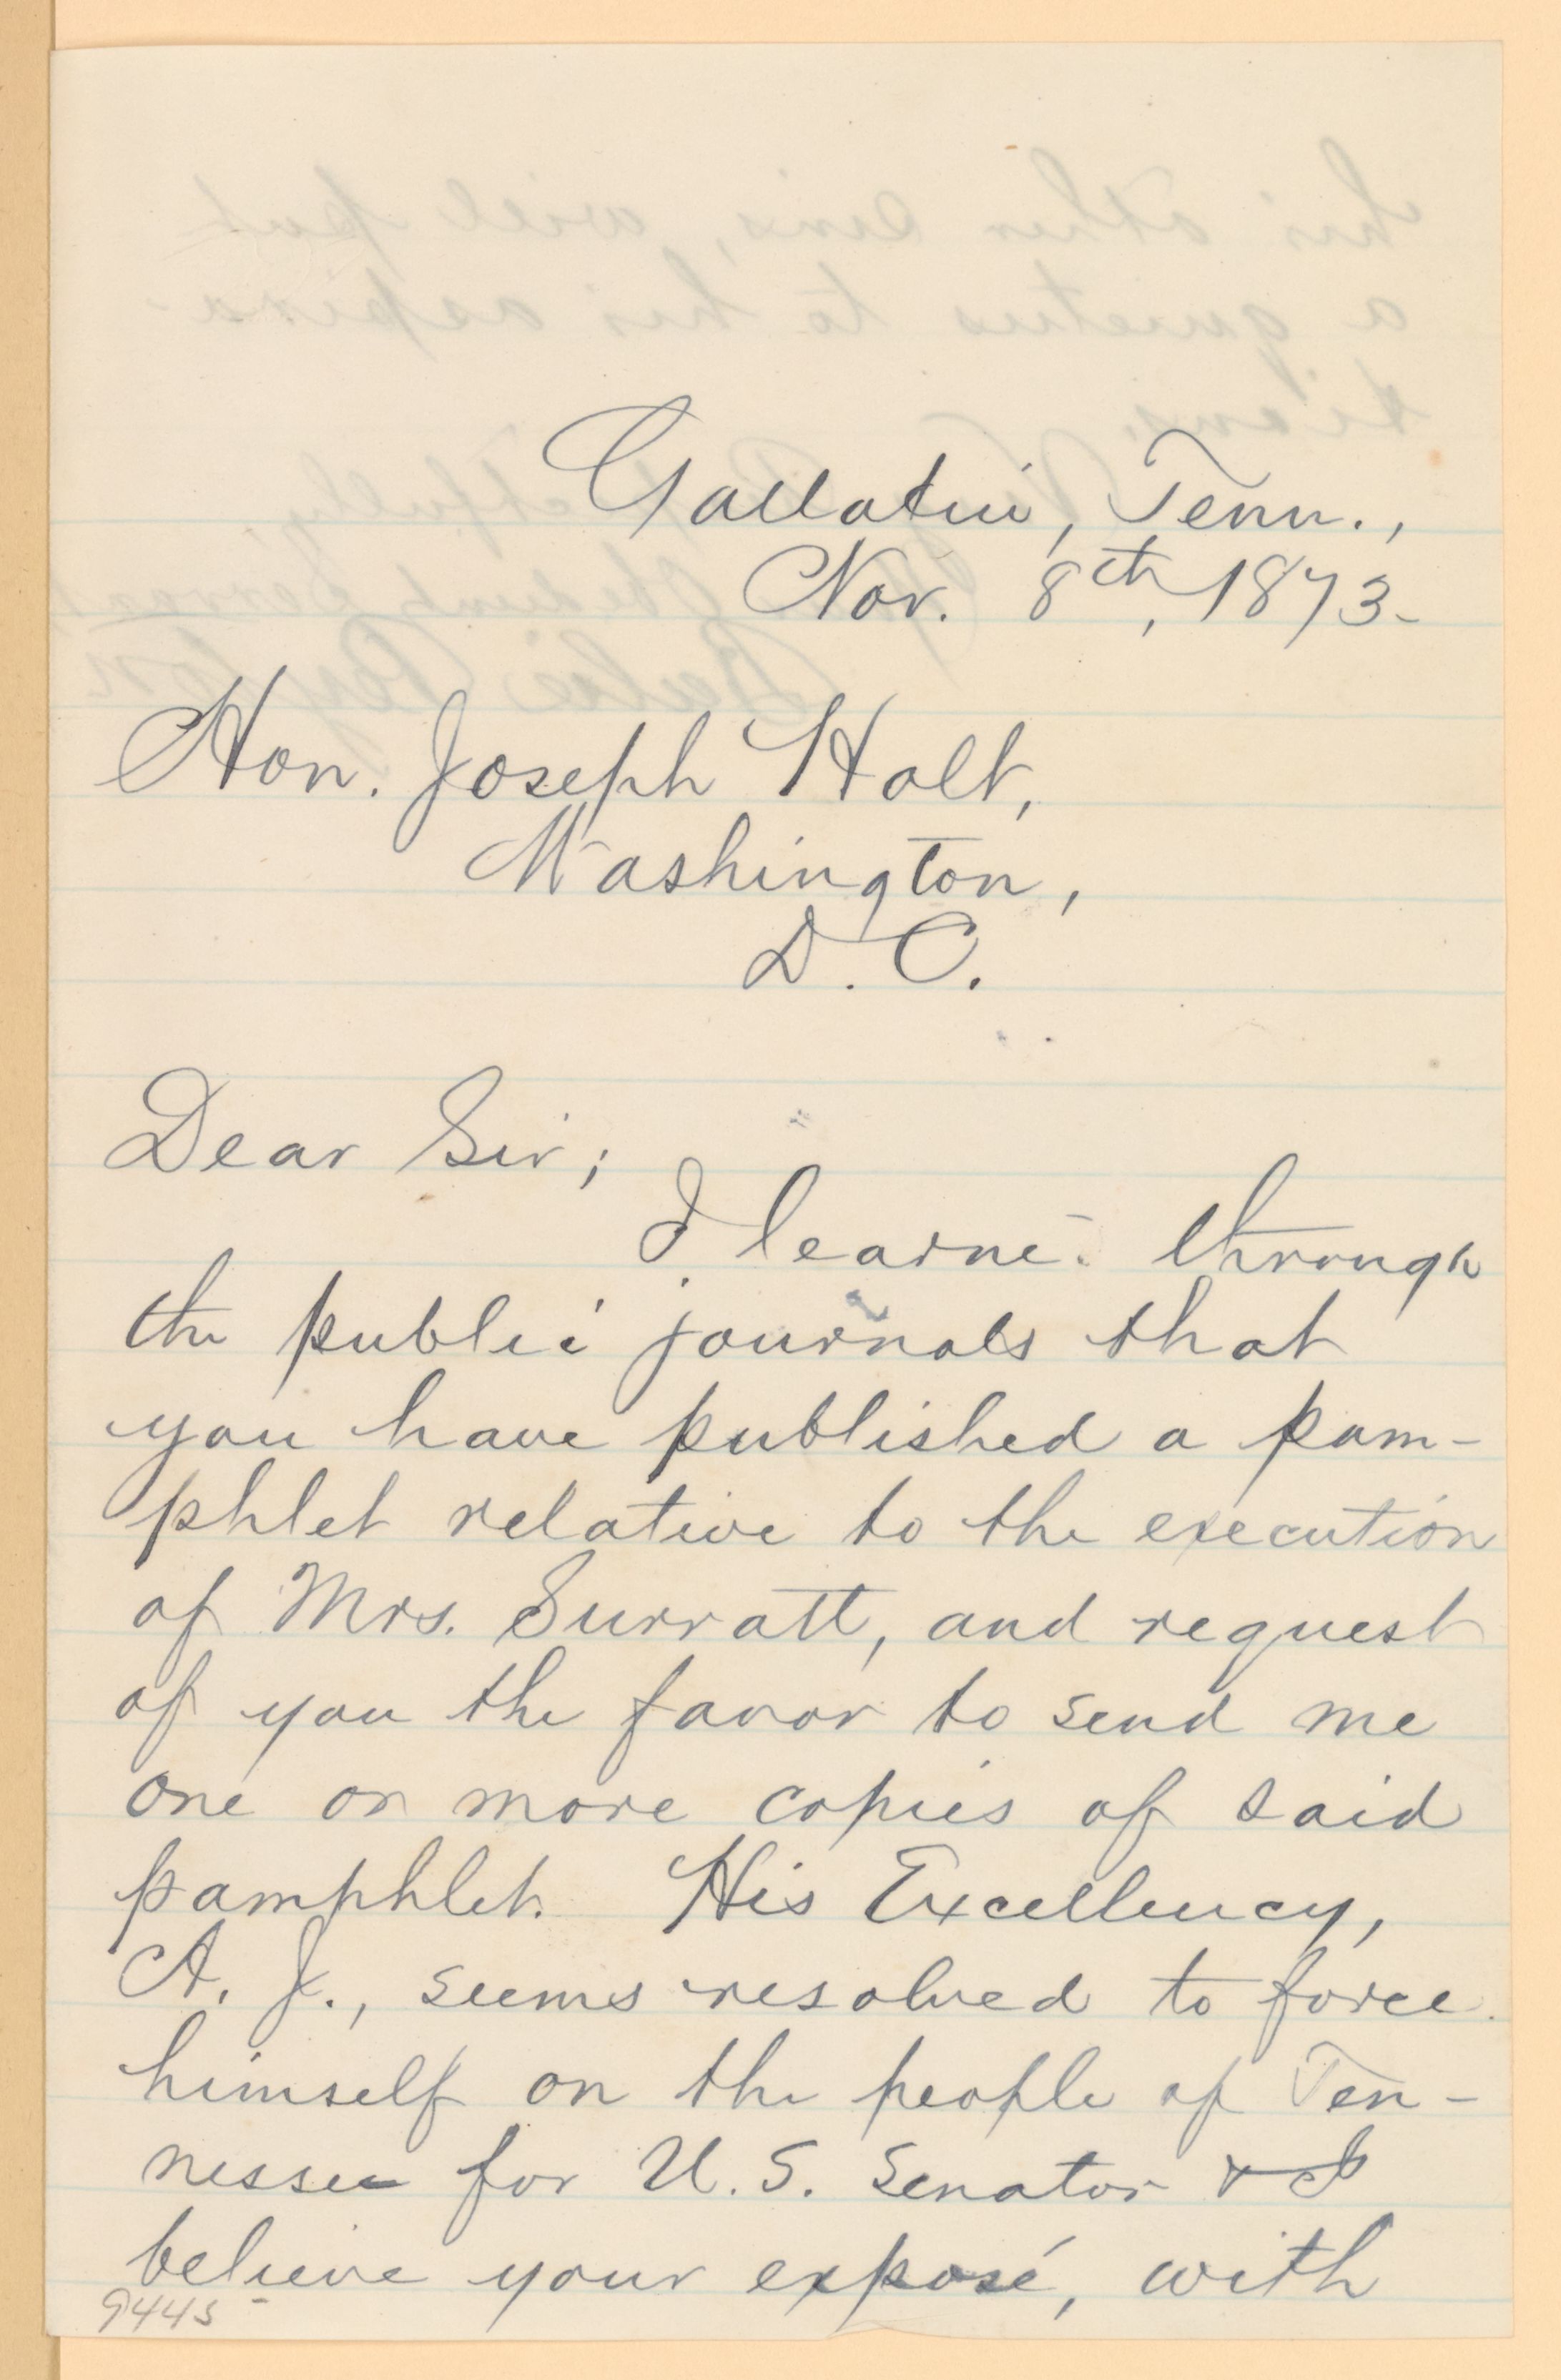 Gallatin, Tenn.,
Nov. 8th, 1873.
Hon. Joseph Holt,
Washington,
D. C.
Dear Sir;
I learn through
the public journals that
you have published a pam-
phlet relative to the execution
of Mrs. Surratt, and request
of you the favor to send me
one or more copies of said
pamphlet. His Excellency,
A. J., seems resolved to force
himself on the people of Ten-
nessee for U. S. Senator & I
believe your exposé, with
9445